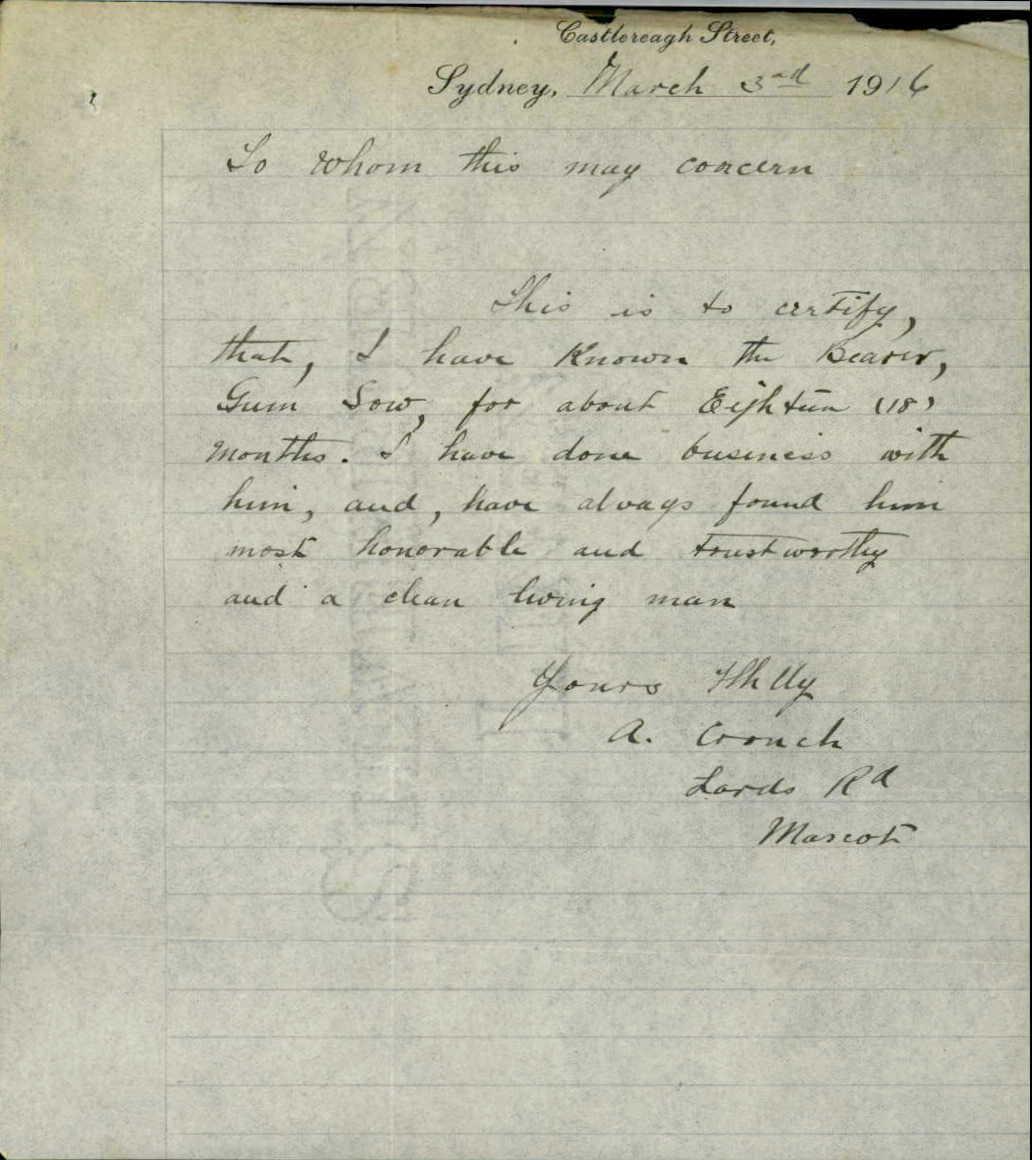 Castlereagh Street,
Sydney, March 3rd 1916
To whom this may concern
This is to certify,
that, I have Known the Bearer,
Gum Sow, for about Eighteen (18)
months. I have done business with
him, and, have always found him
most honorable and trustworthy
and a clean living man
Yours
A. Crouch
Lords Rd
Mascot